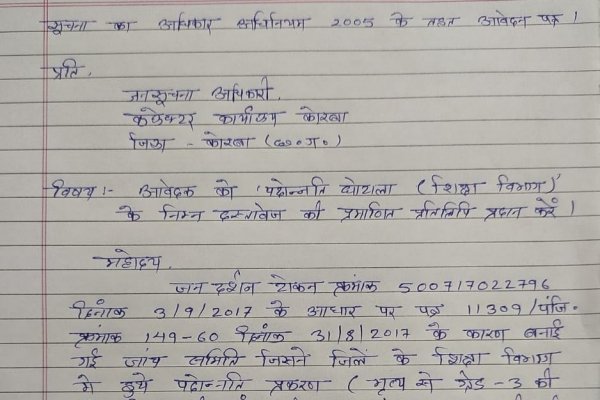 सूचना का अधिकार अधिनियम 2005 के तहत आवेदन पत्र।
प्रति,
जनसूचना अधिकारी,
कलेक्टर कार्यालय कोरबा
जिला - कोरबा (छ०ग०)
विषय:- आवेदक को 'पदोन्नति घोटाला (शिक्षा विभाग)'
के निम्न दस्तावेज की प्रमाणित प्रतिलिपि प्रदान करें।
महोदय,
जन दर्शन टोकन क्रमांक 500717022796
दिनांक 3/9/2017 के आधार पर पत्र 11309/पंजि.
क्रमांक 149-60 दिनांक 31/8/2017 के कारण बनाई
गई जांच समिति जिसने जिले के शिक्षा विभाग
मे हुये पदोन्नति प्रकरण (भृत्य से ग्रेड-3 की